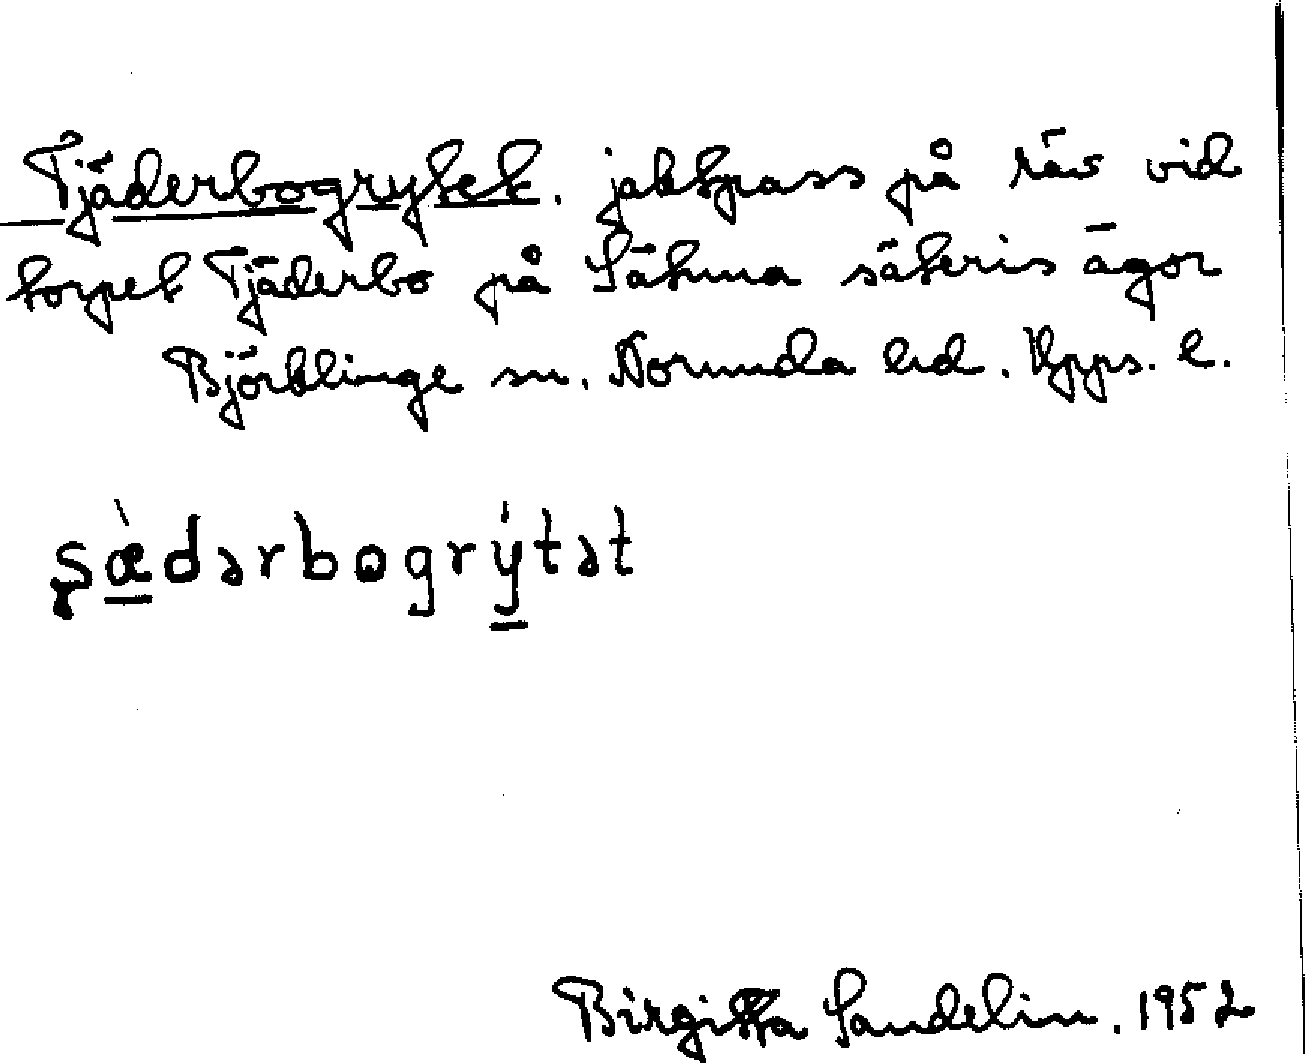 Tjäderbogrytet. jaktpass på räv vid
torpet Tjäderbo på Sätuna säteris ägor
Björklinge sn. Norunda hd. Upps. l.
şæ̀dərbogrýtət
Birgitta Sandelin. 1952